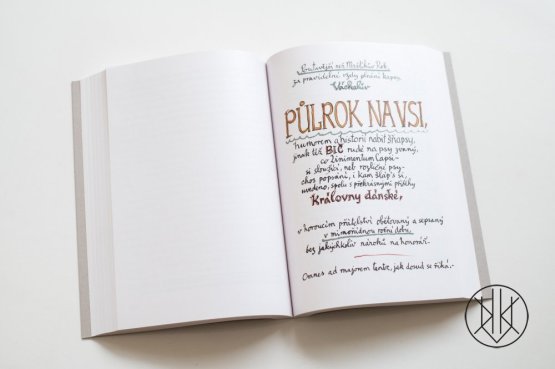 Poutavější než Mrštíků Rok,
za pravidelné vždy plnění kapsy
Váchalův
PŮLROK NA VSI,
humorem a historií nabit šňapsy,
jinak též BIČ rudě na psy zvaný,
co žinimentum lapsi-
si sloužící, neb rozličné psy-
chos popsání, i kam šláp's si,
uvedeno, spolu s překrásnými příběhy
Královny dánské,
v horoucím přátelství obětovaný a sepsaný
v mimořádnou roční dobu,
bez jakýchkoliv nároků na honorář.
Omnes ad majorem tante, jak dosud se říká.-